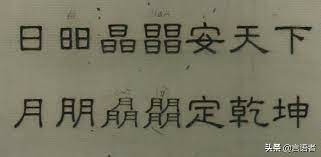 日昍晶𣊫安天下
月朋朤定乾坤
头条 @言语者